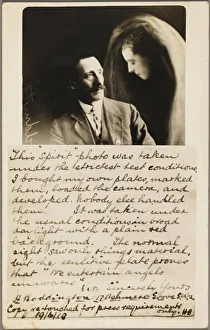 This "Spirit" photo was taken
under the strictest test conditions
I bought my own plates, marked
them, loaded the camera, and
developed. Nobody else handled
them. It was taken under
the usual conditions in broad
daylight with a plain red
background. The normal
sight sees only things material,
but the sensitive plate proves
that "We entertain angels
unawares"
Sincerely Yours
H Boddington. 17 Ashmere Grove
Copy retouched for press requirements
only. HB